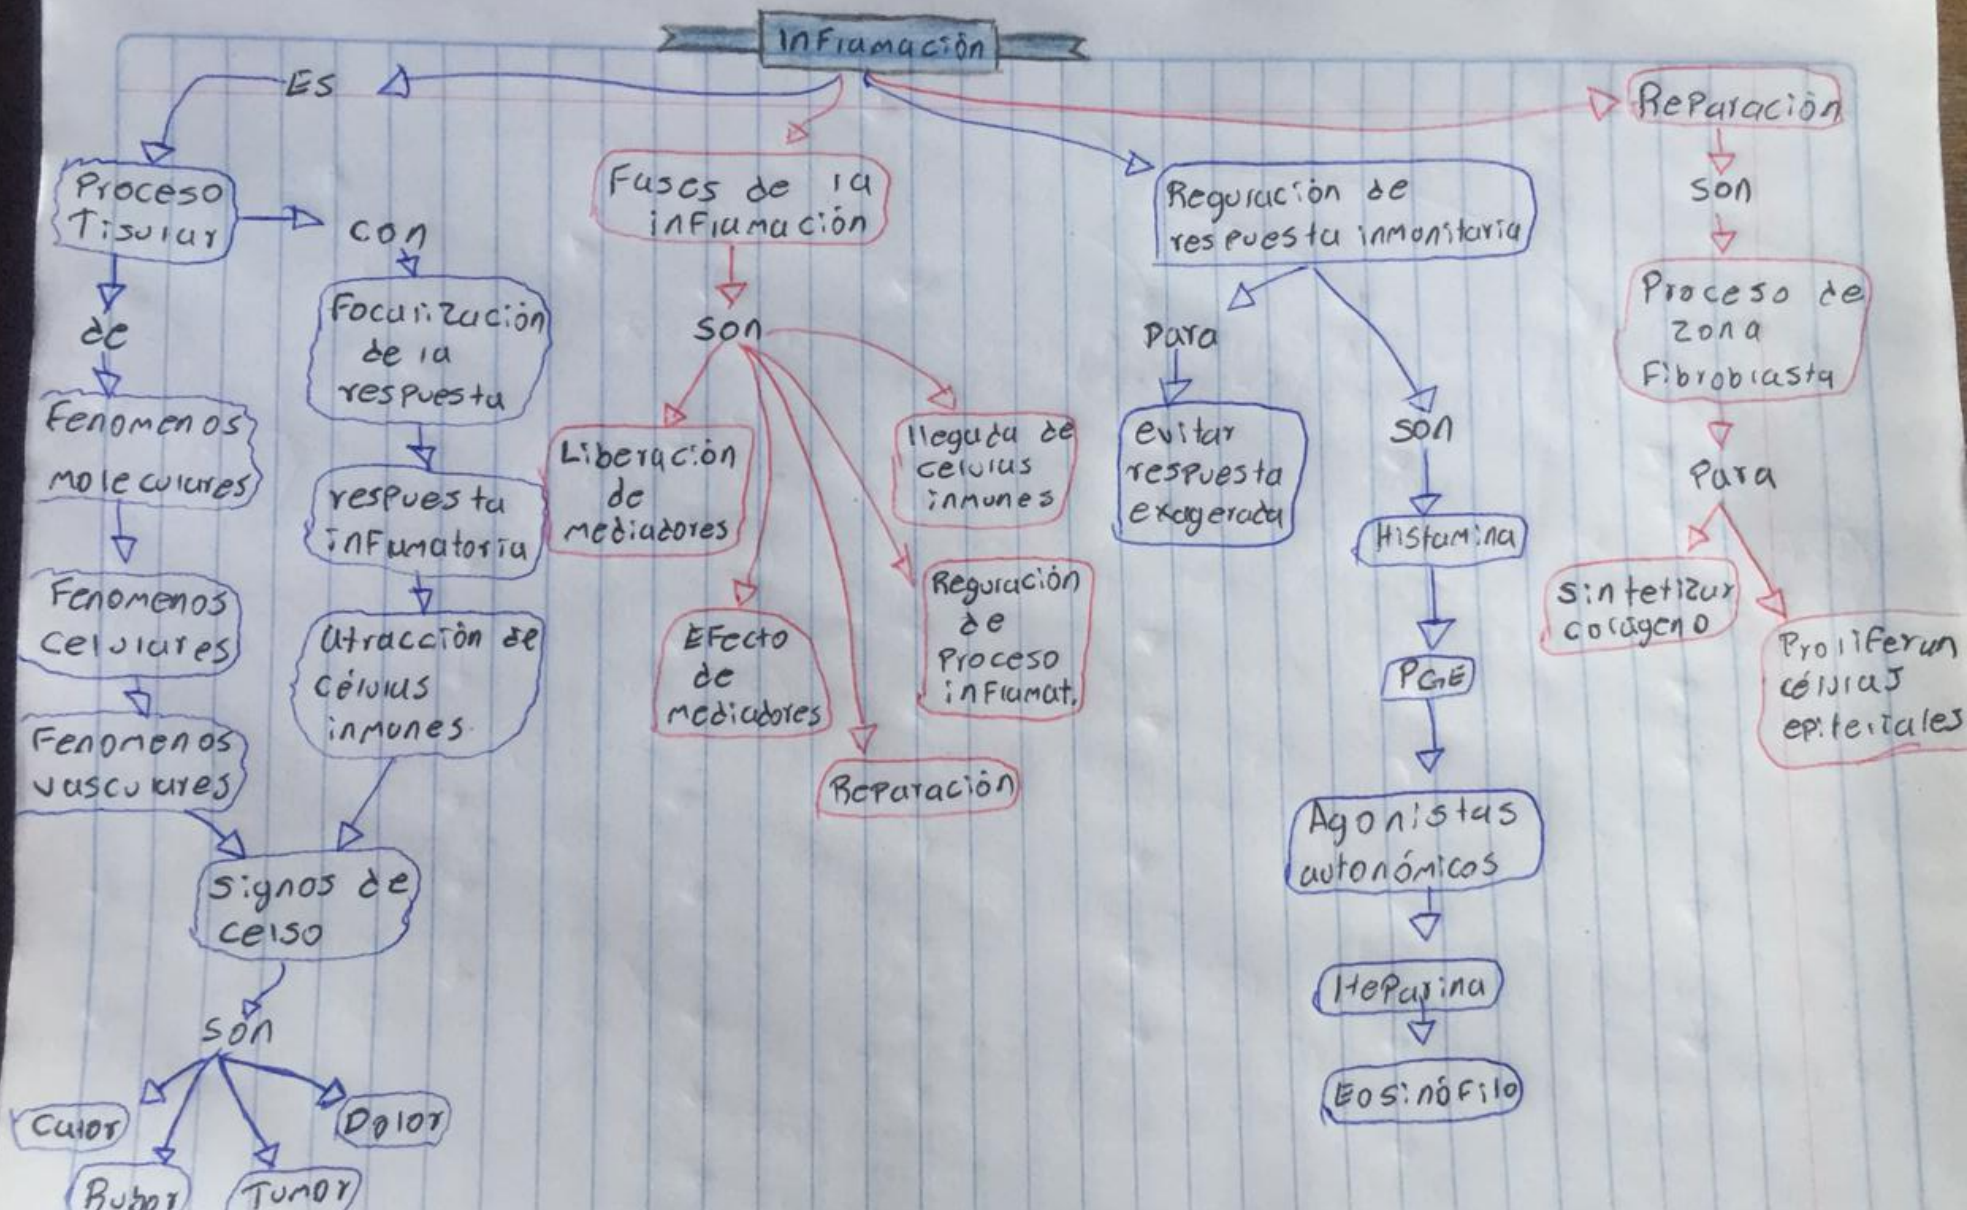 Inflamación
Es
Proceso
Tisular
de
Fenomenos
moleculares
Fenomenos
celulares
Fenomenos
vasculares
con
Focalización
de la
respuesta
respuesta
inflamatoria
atracción de
células
inmunes.
Signos de
celso
son
Calor
Rubor
Tumor
Dolor
Fases de la
inflamación
son
Liberación
de
mediadores
Efecto
de
mediadores
Reparación
Regulación
de
Proceso
inflamat.
llegada de
celulas
inmunes
Regulación de
respuesta inmonitaria
Para
evitar
respuesta
exagerada
son
Histamina
PGE
Agonistas
autonómicos
Heparina
Eosinófilo
Reparación
son
Proceso de
zona
Fibroblasta
Para
sintetizar
colágeno
Proliferan
células
epiteliales